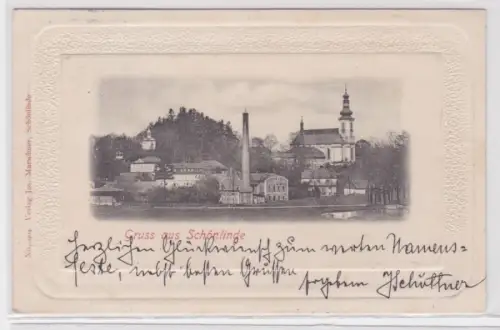 Gruss aus Schönlinde
Herzlichen Glückwunsch zum werten Namens-
feste, nebst besten Grüssen
ergeben JSchüttner
Verlag Jos. Marschner, Schönlinde